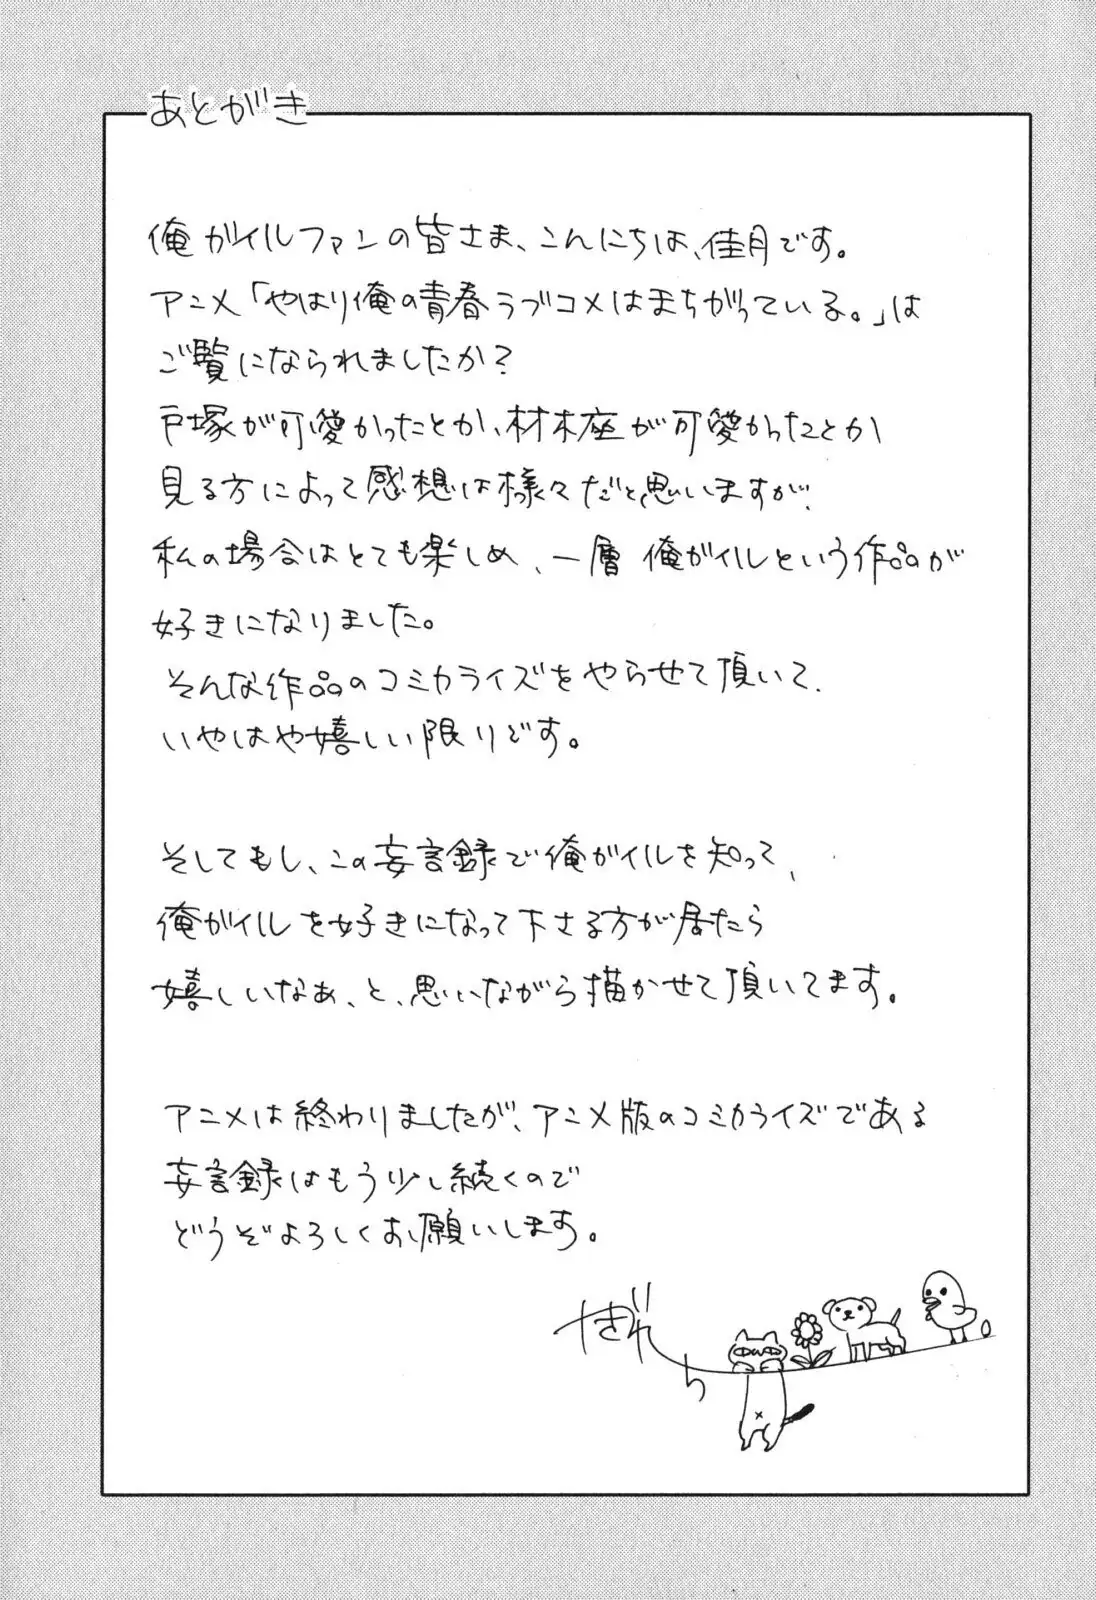 あとがき
俺ガイルファンの皆さま、こんにちは、佳月です。
アニメ「やはり俺の青春ラブコメはまちがっている。」は
ご覧になられましたか？
戸塚が可愛かったとか、材木座が可愛かったとか
見る方によって感想は様々だと思いますが、
私の場合はとても楽しめ、一層 俺ガイルという作品が
好きになりました。
そんな作品のコミカライズをやらせて頂いて、
いやはや嬉しい限りです。
そしてもし、この妄言録で俺ガイルを知って、
俺ガイルを好きになって下さる方が居たら
嬉しいなぁ、と、思いながら描かせて頂いてます。
アニメは終わりましたが、アニメ版のコミカライズである
妄言録はもう少し続くので
どうぞよろしくお願いします。